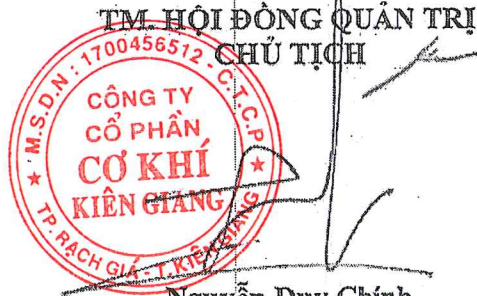 TM. HỘI ĐỒNG QUẢN TRỊ
CHỦ TỊCH
M.S.D.N: 1700456512 - C.T.C.P
CÔNG TY
CỔ PHẦN
CƠ KHÍ
KIÊN GIANG
TP. RẠCH GIÁ - T. KIÊN GIANG
Nguyễn Duy Chính